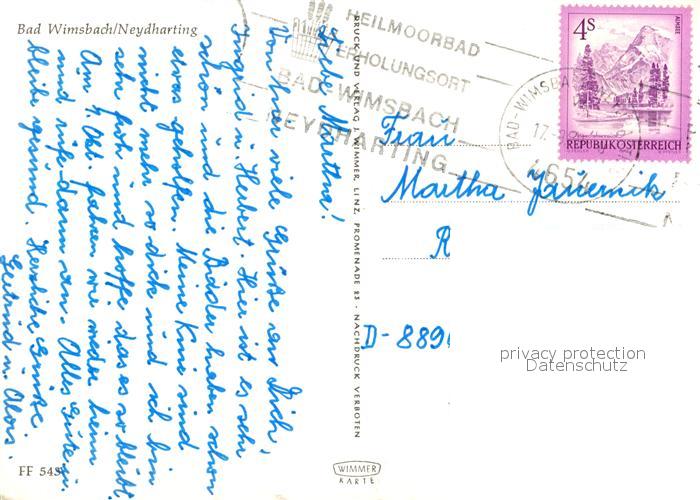 Bad Wimsbach/Neydharting
HEILMOORBAD
ERHOLUNGSORT
BAD WIMSBACH
NEYDHARTING
4S
ALMSEE
REPUBLIK ÖSTERREICH
BAD-WIMSBA
17.
4654
Liebe Martha!
Von hier viele Grüße an Dich,
Ingrid u. Herbert. Hier ist es sehr
schön und die Bäder haben schon
etwas geholfen. Meine Knie sind
nicht mehr so dick und ich bin
sehr froh und hoffe das es so bleibt.
Am 1. Okt. fahren wir wieder heim
und rufe dann an. Alles Gute u.
bleibe gesund. Herzliche Grüße
Gertrud u. Alois.
DRUCK UND VERLAG J. WIMMER, LINZ, PROMENADE 23 - NACHDRUCK VERBOTEN
Frau
Martha
R
D-889
privacy protection
Datenschutz
FF 543
WIMMER
KARTE